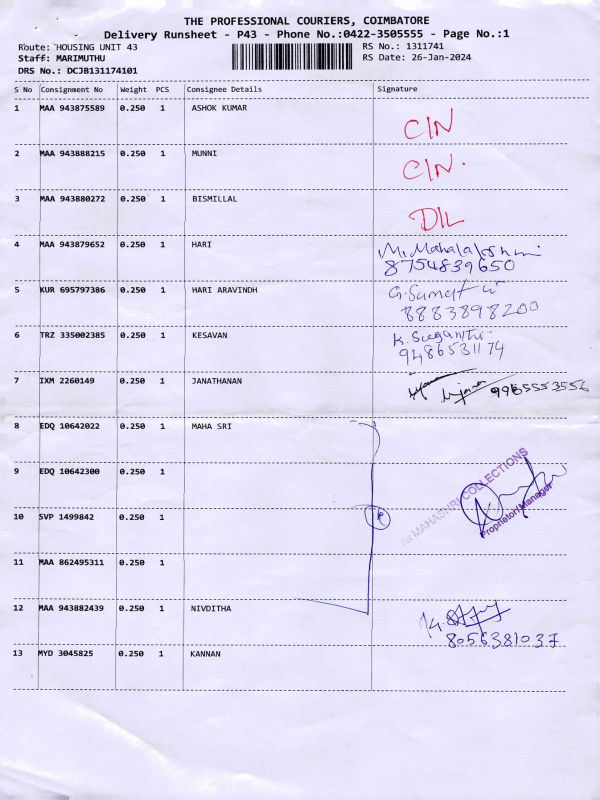 THE PROFESSIONAL COURIERS, COIMBATORE
Delivery Runsheet - P43 - Phone No.:0422-3505555 - Page No.:1
Route: HOUSING UNIT 43 RS No.: 1311741
Staff: MARIMUTHU RS Date: 26-Jan-2024
DRS No.: DCJB131174101
S No Consignment No Weight PCS Consignee Details Signature
1 MAA 943875589 0.250 1 ASHOK KUMAR CIN
2 MAA 943888215 0.250 1 MUNNI CIN.
3 MAA 943880272 0.250 1 BISMILLAL DIL
4 MAA 943879652 0.250 1 HARI M. Mahalakshmi
8754839650
5 KUR 695797386 0.250 1 HARI ARAVINDH G.Sumathi
8883898200
6 TRZ 335002385 0.250 1 KESAVAN K. Suganthi
9486531174
7 IXM 2260149 0.250 1 JANATHANAN 9965553556
8 EDQ 10642022 0.250 1 MAHA SRI
9 EDQ 10642300 0.250 1
for MAHASHRI COLLECTIONS
Proprietor/Manager
10 SVP 1499842 0.250 1
11 MAA 862495311 0.250 1
12 MAA 943882439 0.250 1 NIVDITHA
8056381037
13 MYD 3045825 0.250 1 KANNAN